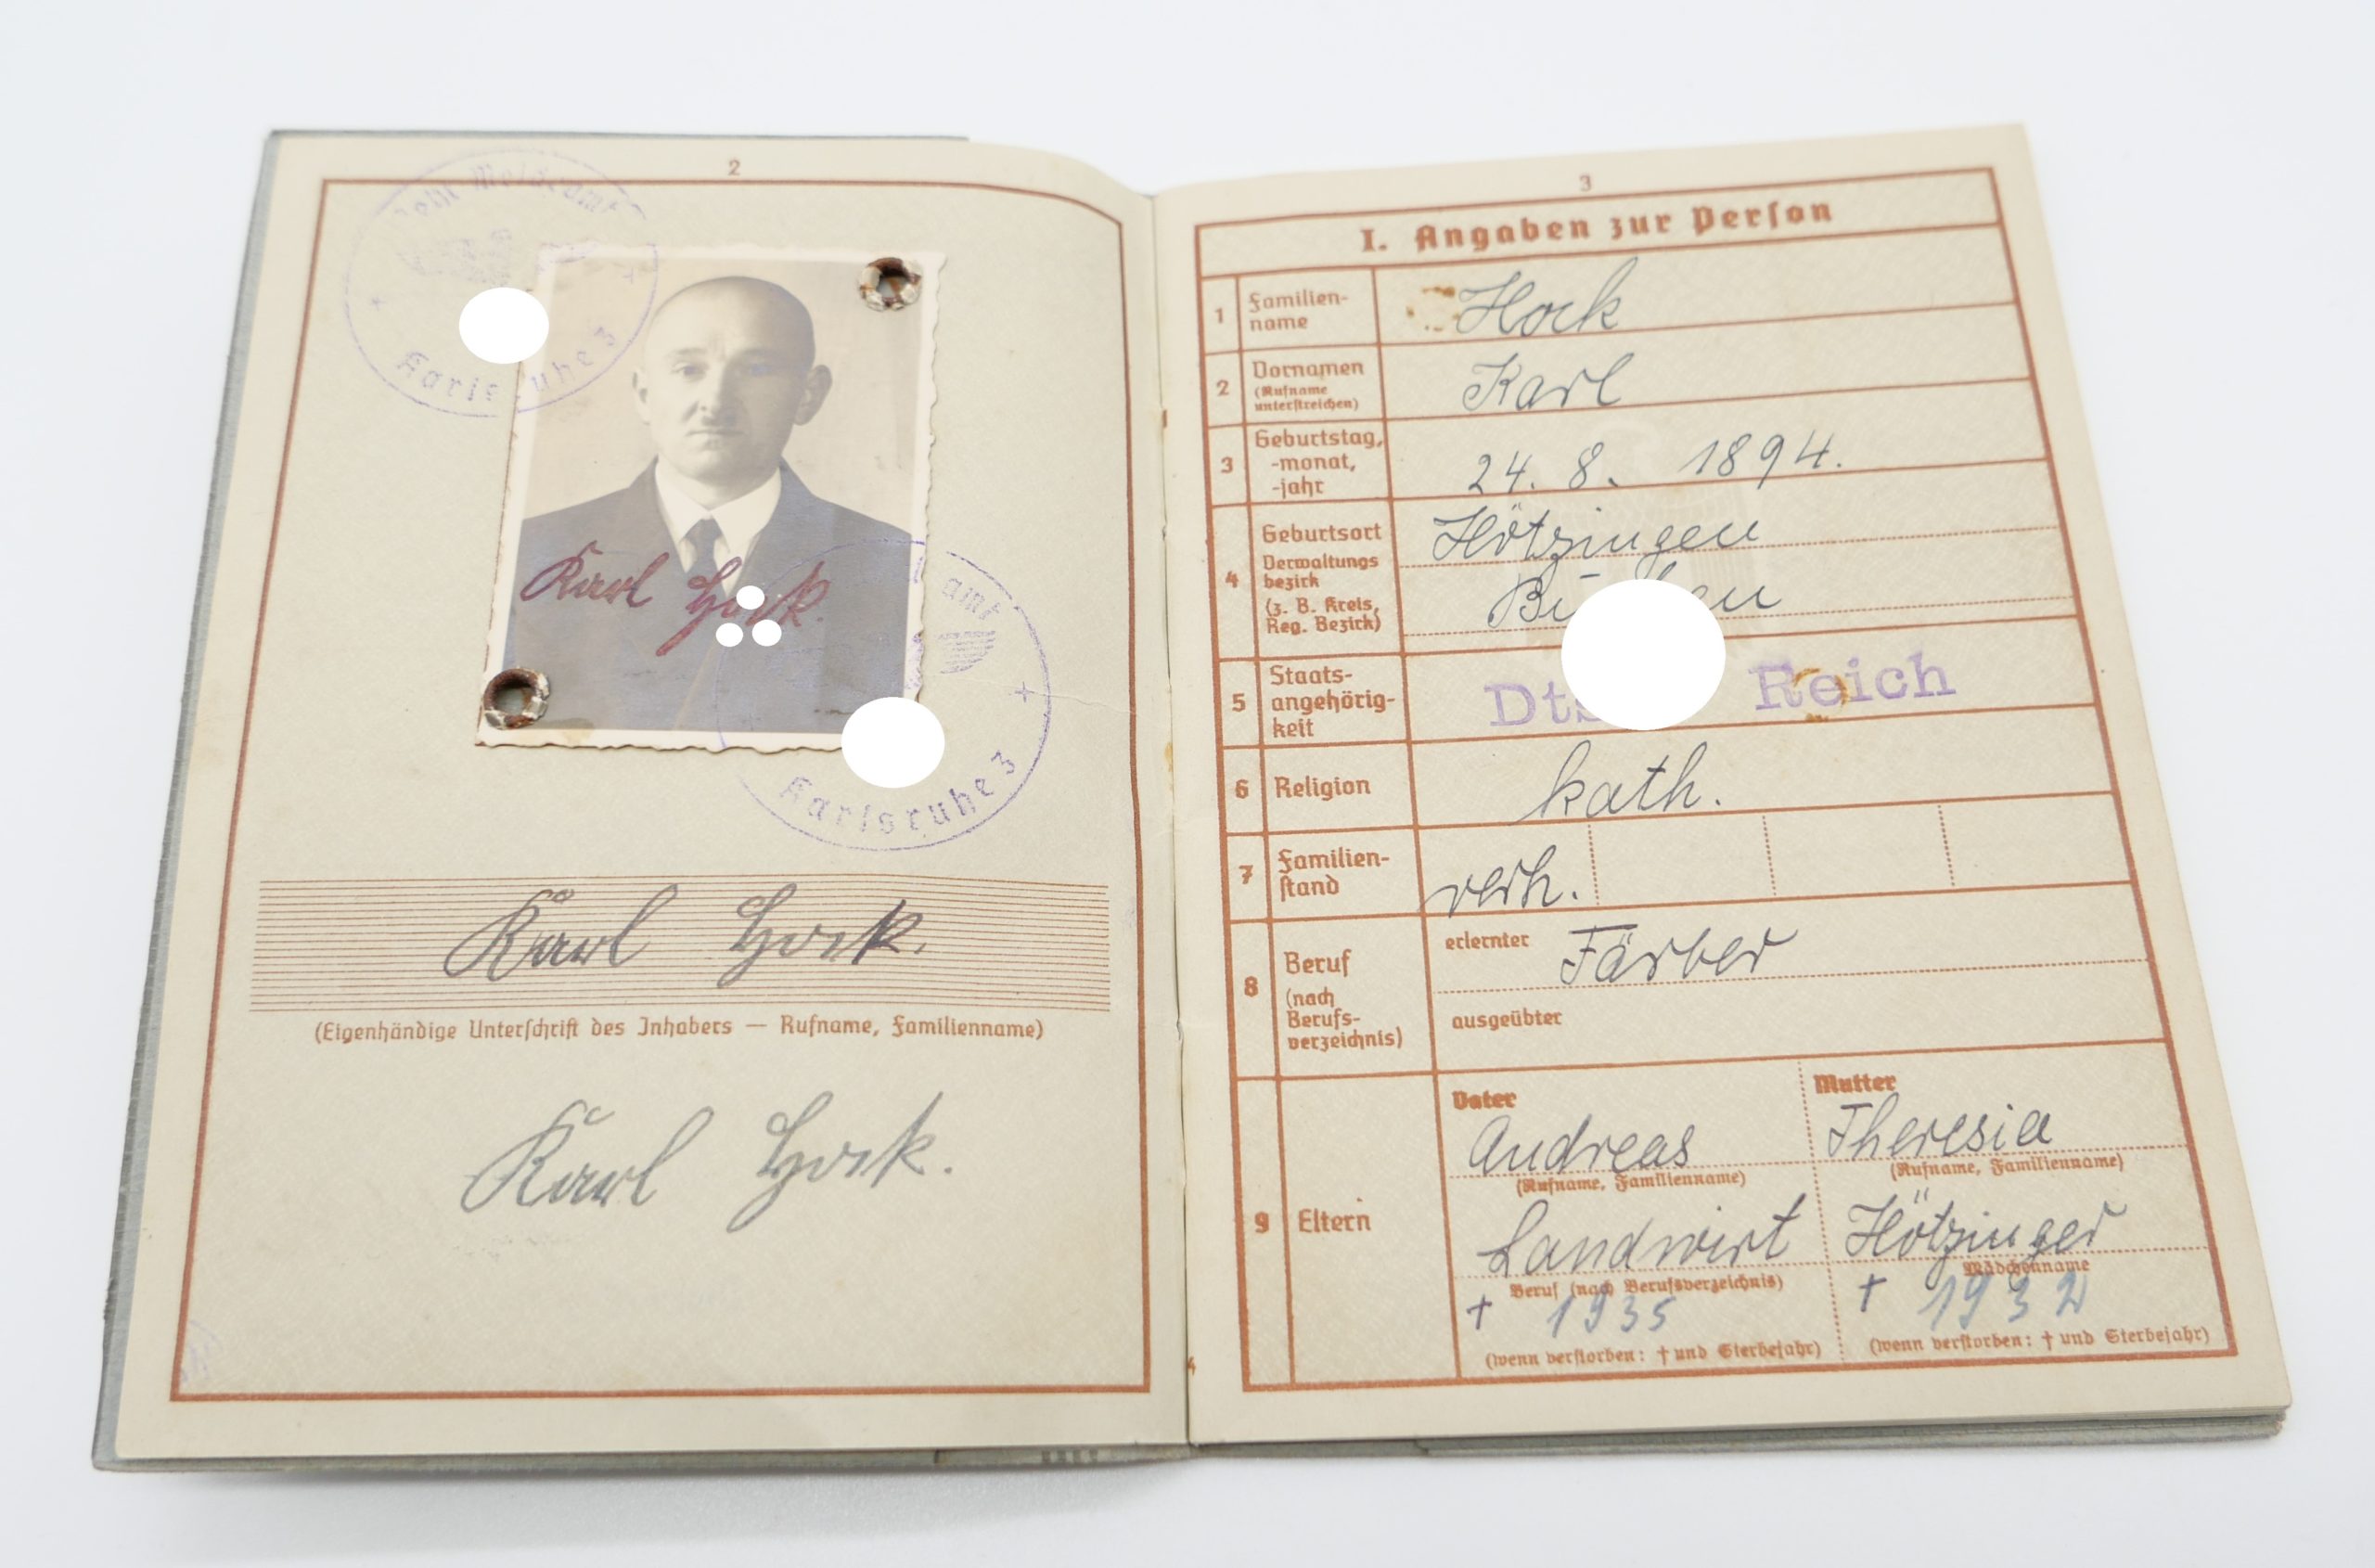 2
Meldeamt
Karlsruhe 3
Karl Hock.
amt
Karlsruhe 3
Karl Hock.
(Eigenhändige Unterschrift des Inhabers — Rufname, Familienname)
Karl Hock.
3
I. Angaben zur Person
1 Familien-
name
Hock
2 Vornamen
(Rufname
unterstreichen)
Karl
3 Geburtstag,
-monat,
-jahr
24. 8. 1894.
4 Geburtsort
Verwaltungs
bezirk
(z. B. Kreis,
Reg. Bezirk)
Hötzingen
5 Staats-
angehörig-
keit
Reich
6 Religion
kath.
7 Familien-
stand
verh.
8 Beruf
(nach
Berufs-
verzeichnis)
erlernter Färber
ausgeübter
9 Eltern
Vater
Andreas
(Rufname, Familienname)
Landwirt
Beruf (nach Berufsverzeichnis)
† 1935
(wenn verstorben: † und Sterbejahr)
Mutter
Theresia
(Rufname, Familienname)
Hötzinger
Mädchenname
† 1932
(wenn verstorben: † und Sterbejahr)